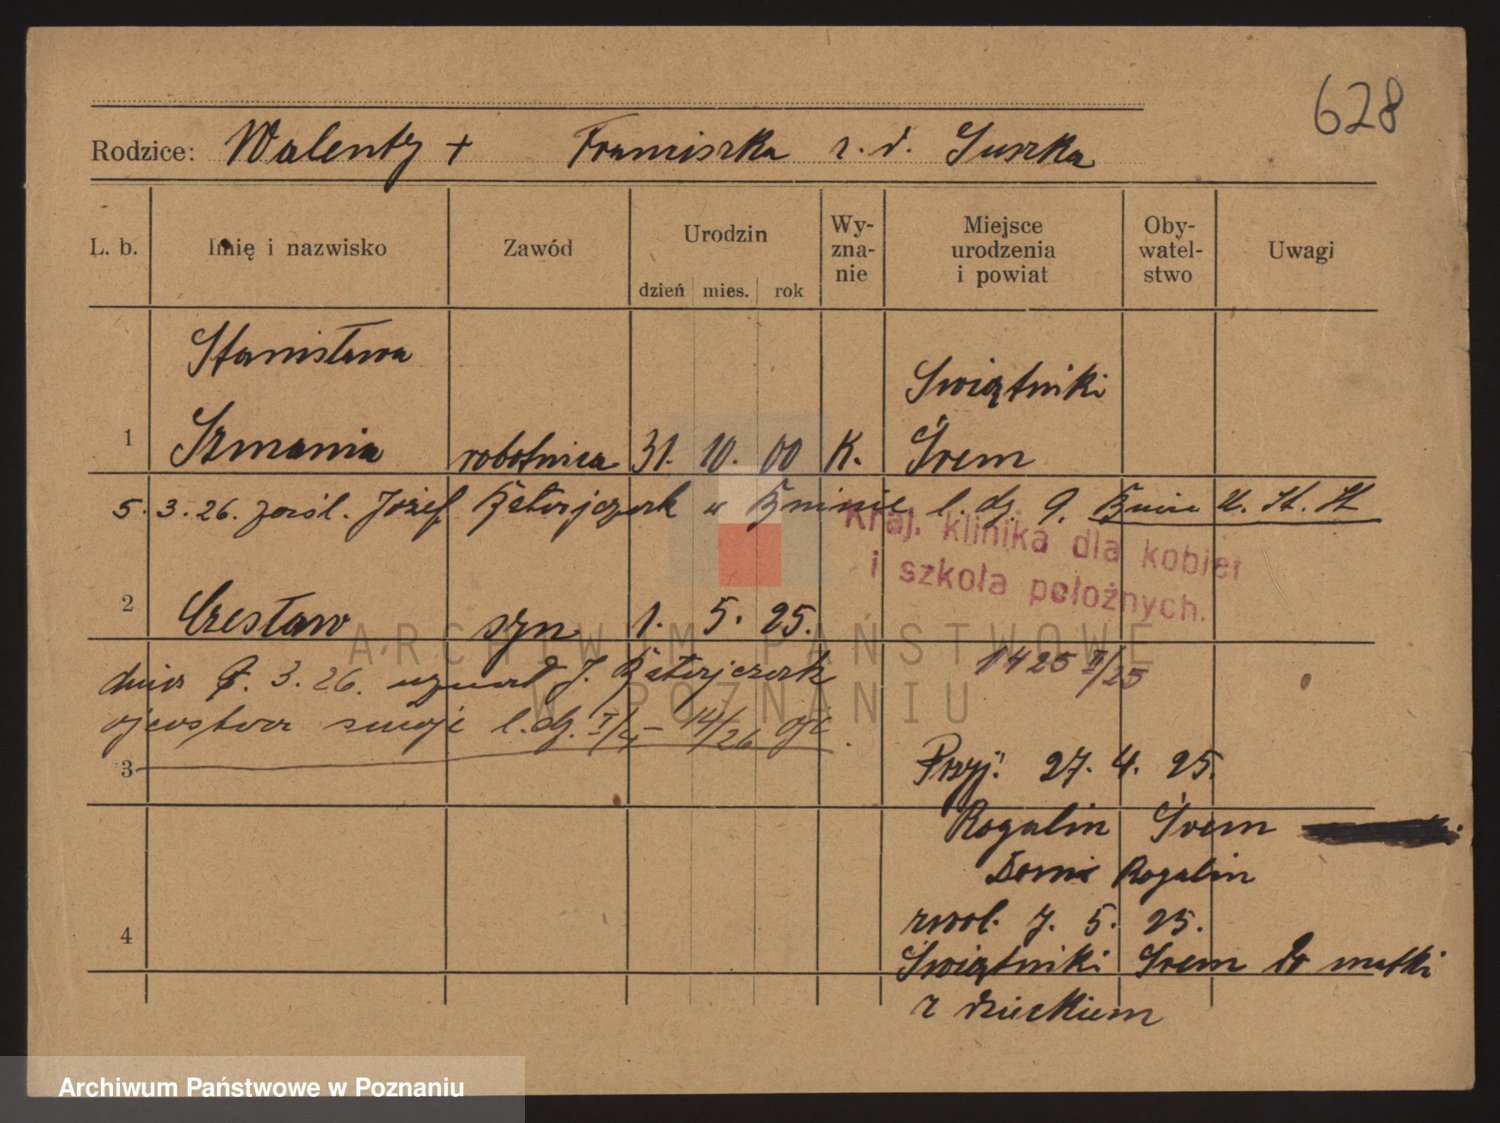 628
Rodzice: Walenty + Franciszka z. d. Suszka
L. b. Imię i nazwisko Zawód Urodzin dzień mies. rok Wy-zna-nie Miejsce urodzenia i powiat Oby-watel-stwo Uwagi
Stanisława
Swiątniki
1 Szmania robotnica 31. 10. 00 K. Śrem
5. 3. 26. zaśl. Józef w Kninie l. dz. 9. Knin U. St. St
Kraj. klinika dla kobiet
i szkoła położnych.
2 Czesław syn 1. 5. 25.
1425 II/25
dnia 8. 3. 26. uznał J.
ojcostwo swoje l. dz. 14/26
3
Przyj. 27. 4. 25.
Rogalin Śrem
Domin Rogalin
4 zwol. 7. 5. 25.
Swiątniki Śrem do matki
z dzieckiem
ARCHIWUM PAŃSTWOWE
W POZNANIU
Archiwum Państwowe w Poznaniu